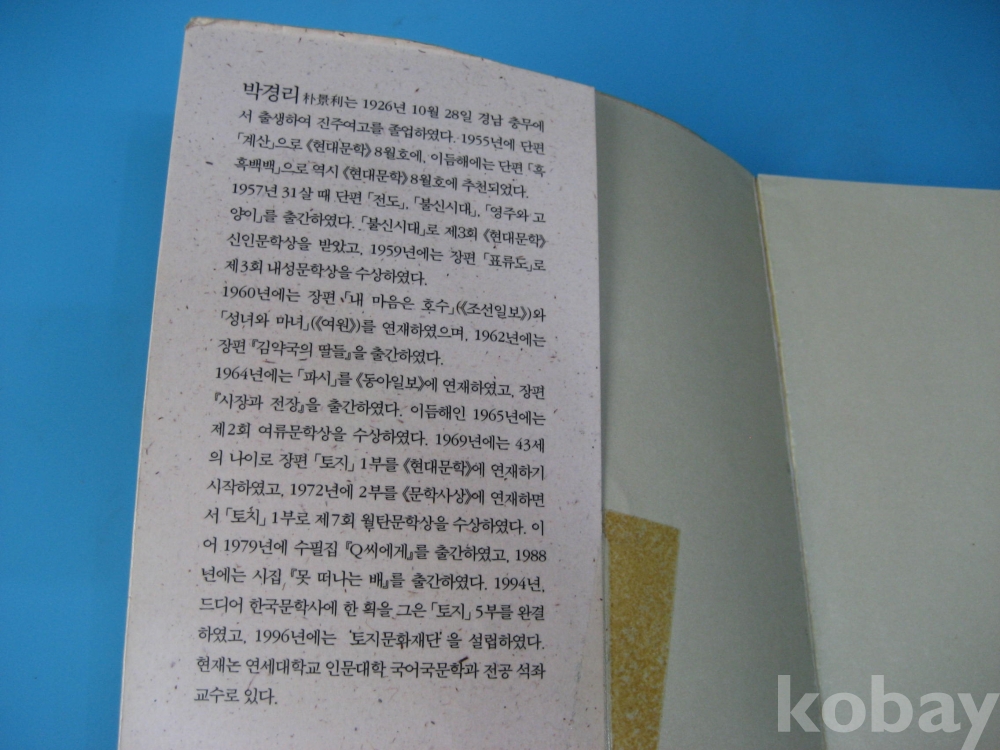 박경리朴景利는 1926년 10월 28일 경남 충무에
서 출생하여 진주여고를 졸업하였다. 1955년에 단편
「계산」으로 《현대문학》 8월호에, 이듬해에는 단편 「흑
흑백백」으로 역시 《현대문학》 8월호에 추천되었다.
1957년 31살 때 단편 「전도」, 「불신시대」, 「영주와 고
양이」를 출간하였다. 「불신시대」로 제3회 《현대문학》
신인문학상을 받았고, 1959년에는 장편 「표류도」로
제3회 내성문학상을 수상하였다.
1960년에는 장편 「내 마음은 호수」(《조선일보》)와
「성녀와 마녀」(《여원》)를 연재하였으며, 1962년에는
장편 『김약국의 딸들』을 출간하였다.
1964년에는 「파시」를 《동아일보》에 연재하였고, 장편
『시장과 전장』을 출간하였다. 이듬해인 1965년에는
제2회 여류문학상을 수상하였다. 1969년에는 43세
의 나이로 장편 「토지」 1부를 《현대문학》에 연재하기
시작하였고, 1972년에 2부를 《문학사상》에 연재하면
서 「토지」 1부로 제7회 월탄문학상을 수상하였다. 이
어 1979년에 수필집 『Q씨에게』를 출간하였고, 1988
년에는 시집 『못 떠나는 배』를 출간하였다. 1994년,
드디어 한국문학사에 한 획을 그은 「토지」 5부를 완결
하였고, 1996년에는 '토지문화재단'을 설립하였다.
현재는 연세대학교 인문대학 국어국문학과 전공 석좌
교수로 있다.
kobay